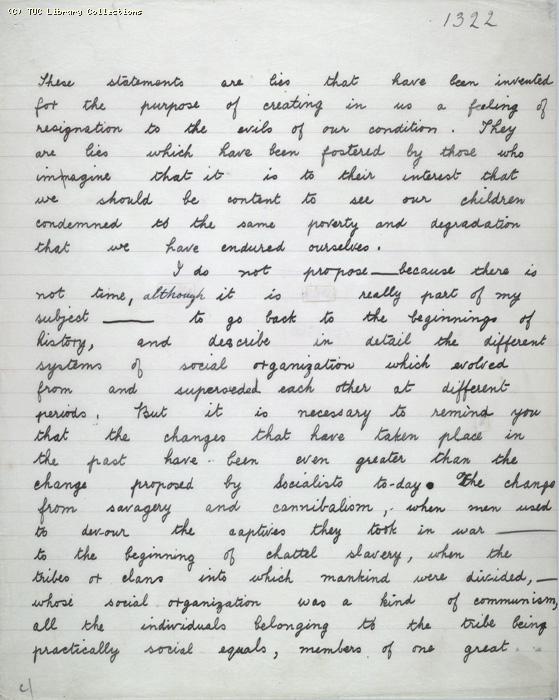 (C) TUC Library Collections
1322
These statements are lies that have been invented
for the purpose of creating in us a feeling of
resignation to the evils of our condition. They
are lies which have been fostered by those who
immagine that it is to their interest that
we should be content to see our children
condemned to the same poverty and degradation
that we have endured ourselves.
I do not propose — because there is
not time, although it is really part of my
subject — to go back to the beginnings of
history, and describe in detail the different
systems of social organization which evolved
from and superseded each other at different
periods. But it is necessary to remind you
that the changes that have taken place in
the past have been even greater than the
change proposed by Socialists to-day. The change
from savagery and cannibalism, when men used
to devour the captives they took in war —
to the beginning of chattel slavery, when the
tribes or clans into which mankind were divided, —
whose social organization was a kind of communism,
all the individuals belonging to the tribe being
practically social equals, members of one great